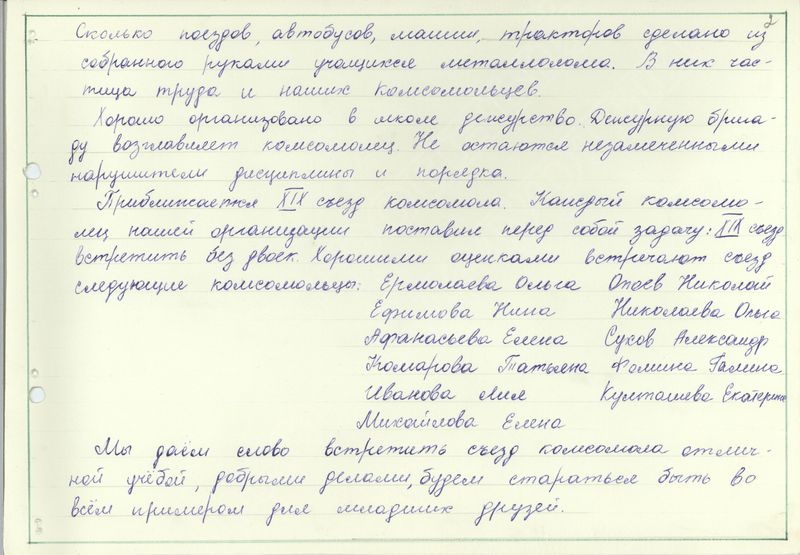 2
Сколько поездов, автобусов, машин, тракторов сделано из
собранного руками учащихся металлолома. В них час-
тица труда и наших комсомольцев.
Хорошо организовано в школе дежурство. Дежурную брига-
ду возглавляет комсомолец. Не остаются незамеченными
нарушители дисциплины и порядка.
Приближается XIX съезд комсомола. Каждый комсомо-
лец нашей организации поставил перед собой задачу: XIX съезд
встретить без двоек. Хорошими оценками встречают съезд
следующие комсомольцы: Ермолаева Ольга Опоев Николай
Ефимова Нина Николаева Ольга
Афанасьева Елена Сухов Александр
Комарова Татьяна Фомина Галина
Иванова Лиля Култашева Екатерина
Михайлова Елена
Мы даём слово встретить съезд комсомола отлич-
ной учёбой, добрыми делами, будем стараться быть во
всём примером для младших друзей.